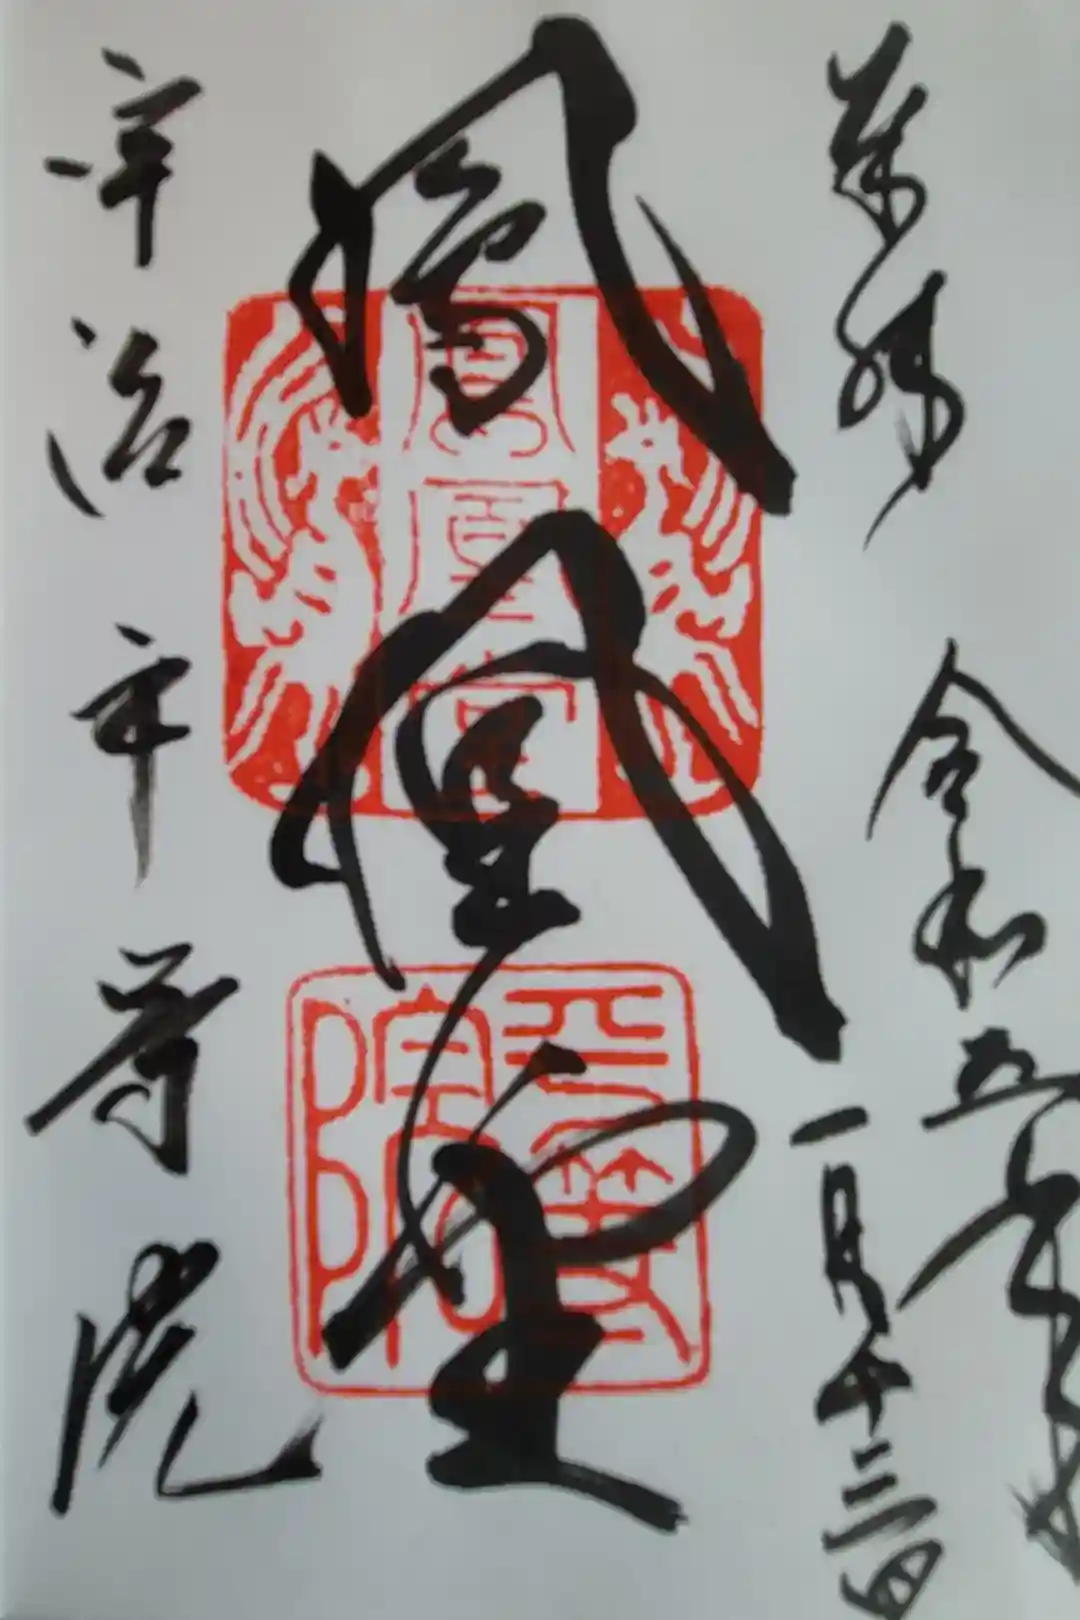 奉拝
令和五年
一月十三日
鳳凰堂
鳳凰堂
平等院
宇治市
平等院